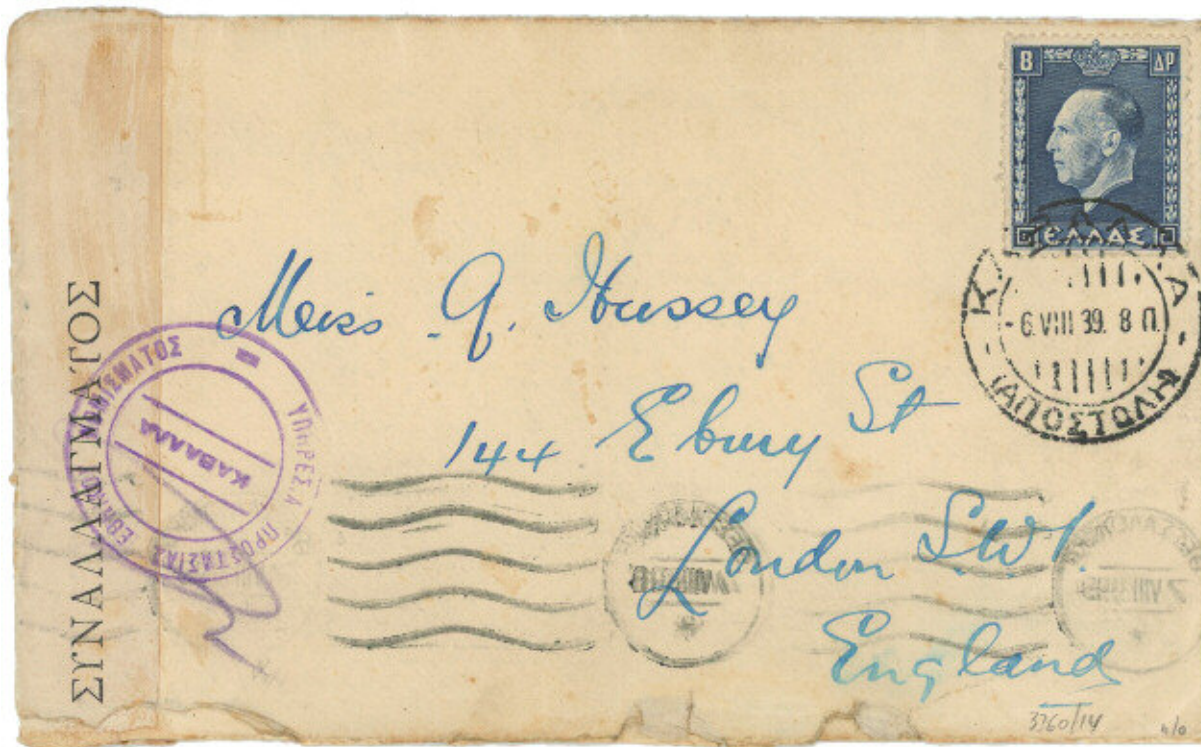 8 ΔΡ
ΕΛΛΑΣ
ΚΑΒΑΛΛΑ
-6.VIII 39. 8 Π.
(ΑΠΟΣΤΟΛΗ)
ΣΥΝΑΛΛΑΓΜΑΤΟΣ
ΥΠΗΡΕΣΙΑ ΠΡΟΣΤΑΣΙΑΣ ΕΘΝΙΚΟΥ ΝΟΜΙΣΜΑΤΟΣ
ΚΑΒΑΛΛΑ
Miss Q. Hussey
144 Ebury St
London S.W.1.
England
3360/14